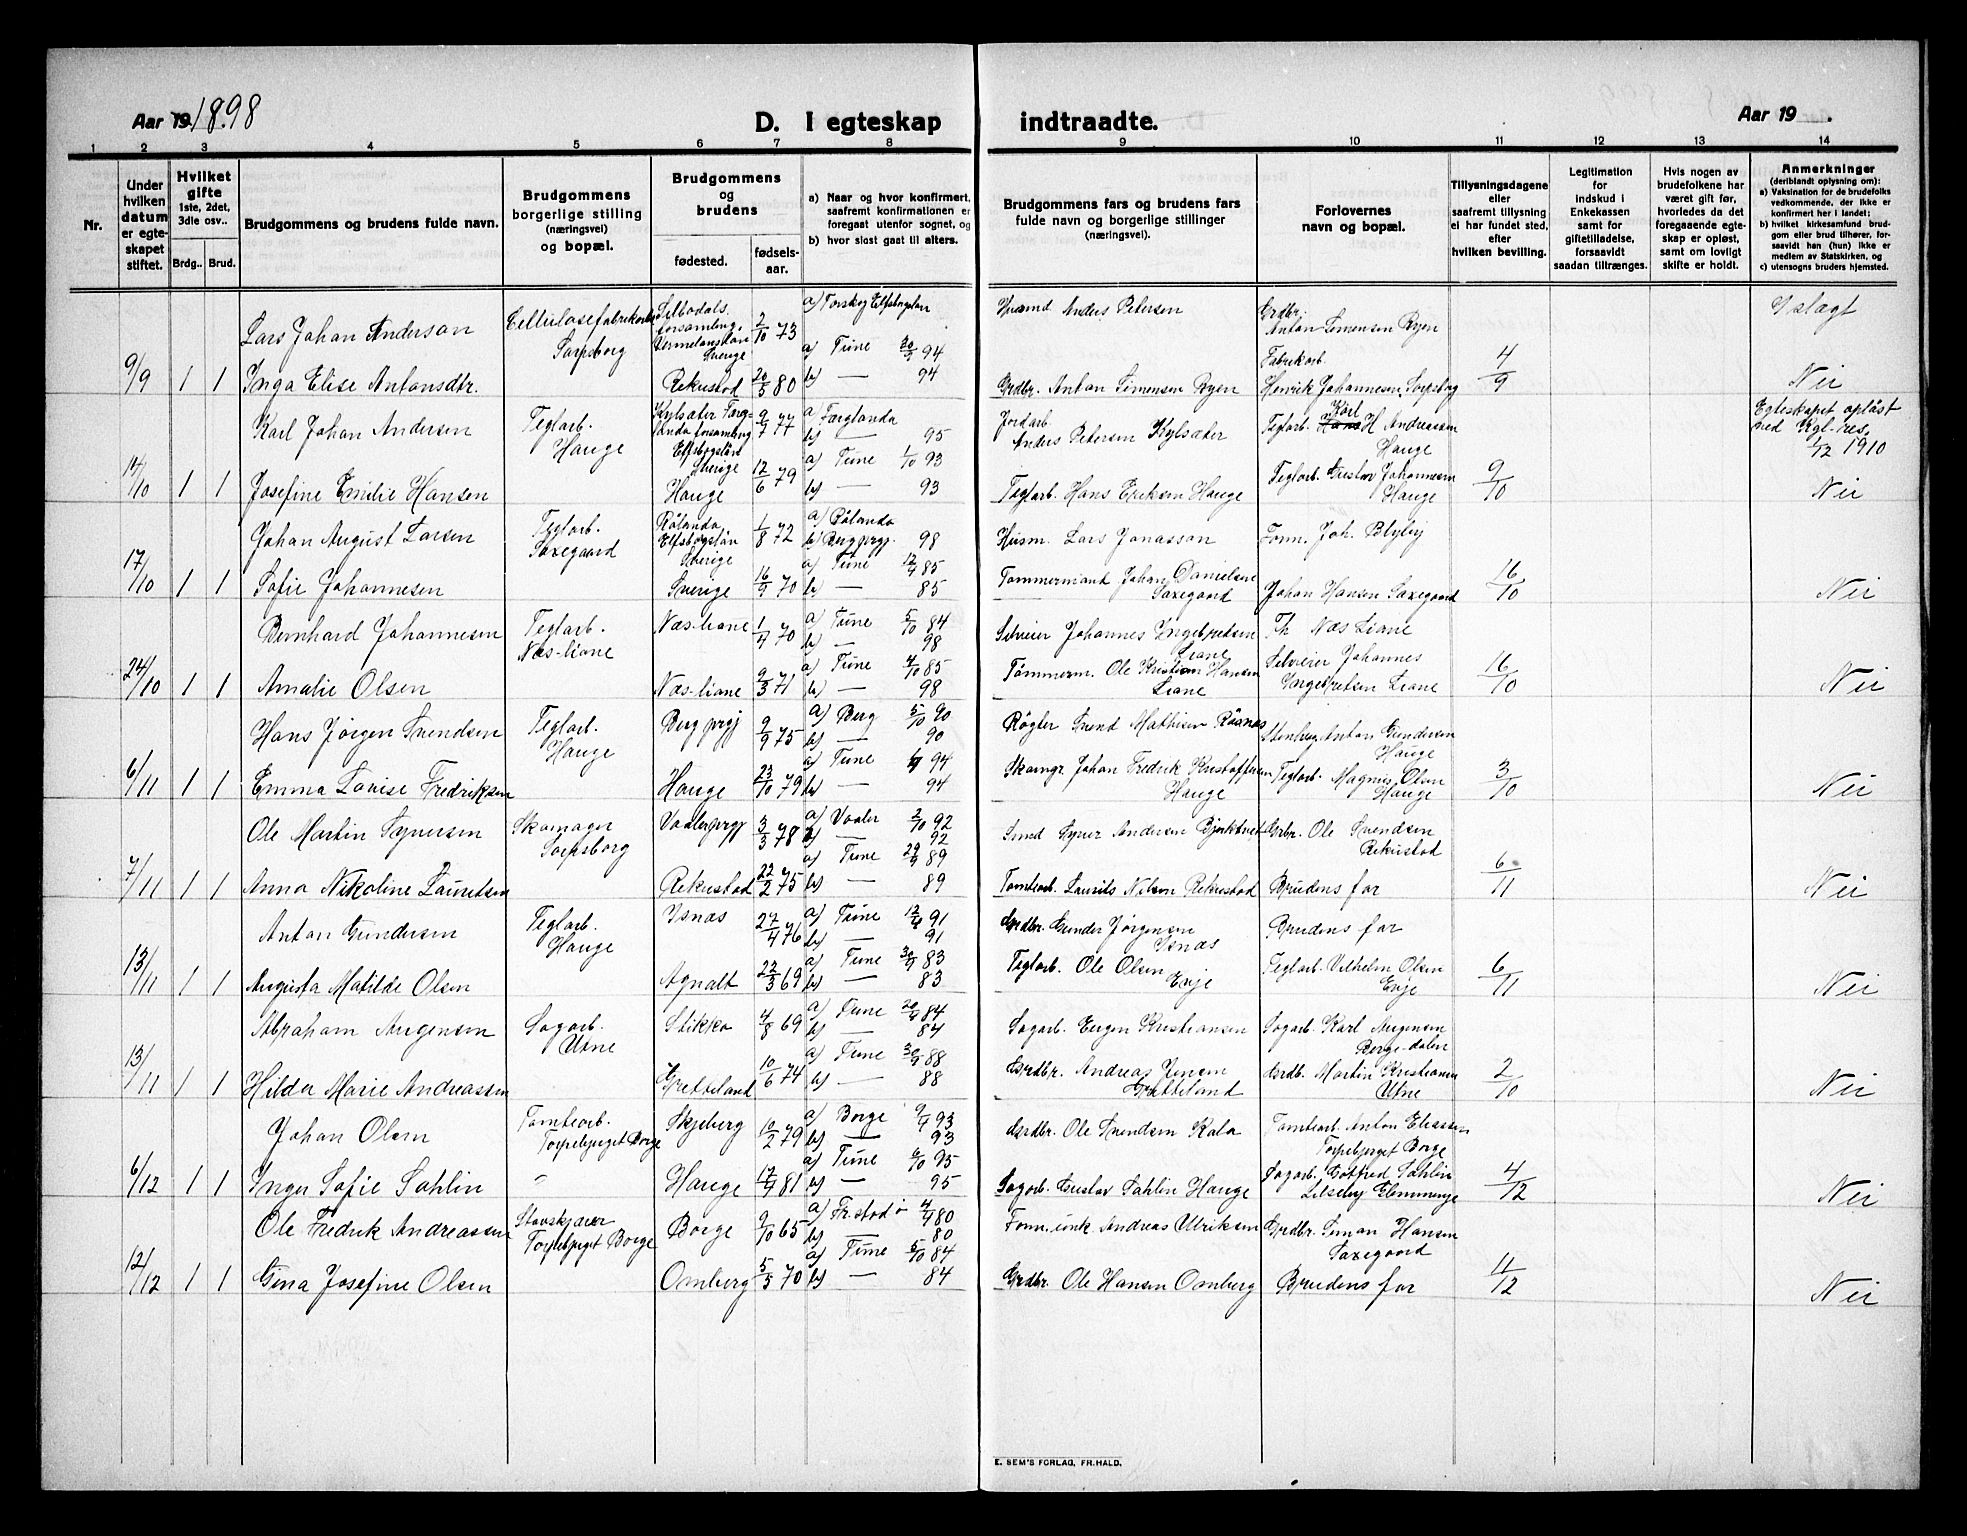 Aar 19 1898
D. I egteskap indtraadte.
Aar 19 .
1 2 3 4 5 6 7 8 9 10 11 12 13 14
Nr.
Under hvilken datum er egteskapet stiftet.
Hvilket gifte 1ste, 2det, 3die osv..
Brdg.. Brud.
Brudgommens og brudens fulde navn.
Brudgommens borgerlige stilling (næringsvei) og bopæl.
Brudgommens og brudens
fødested. fødsels-aar.
a) Naar og hvor konfirmert, saafremt konfirmationen er foregaat utenfor sognet, og
b) hvor sidst gaat til alters.
Brudgommens fars og brudens fars fulde navn og borgerlige stillinger (næringsvei).
Forlovernes navn og bopæl.
Tillysningsdagene eller saafremt tillysning ei har fundet sted, efter hvilken bevilling.
Legitimation for Indskud i Enkekassen samt for giftetilladelse, forsaavidt saadan tiltrænges.
Hvis nogen av brudefolkene har været gift før, hvorledes da det foregaaende egteskap er opløst, samt om lovligt skifte er holdt.
Anmerkninger (deriblandt oplysning om):
a) Vaksination for de brudefolks vedkommende, der ikke er konfirmert her i landet;
b) hvilket kirkesamfund brudgom eller brud tilhører, forsaavidt han (hun) ikke er medlem av Statskirken, og
c) utensogns bruders hjemsted.
Lars Johan Anderson Cellulosefabrikarb. Sarpsborg Silbodals forsamling Vermelandslän Sverige 2/10 73 a) Torskog Elfsborgslän Anders Petersen Grdbr. Anton Simensen Ryen I slægt
9/9 1 1 Inga Elise Antonsdtr. Rekustad 20/5 80 a) Tune 30/9 94 b) — 94 Grdbr. Anton Simensen Ryen Fabrikarb. Henrik Johannesen Sarpsborg 4/9 Nei
Karl Johan Andersen Teglarb. Hauge Kylsæter Færglanda forsamling Elfsborgslän Sverige 9/7 77 a) Færglanda b) — 95 Jordarb. Anders Petersen Kylsæter Teglarb. Karl H Andreassen Hauge Egteskapet opløst ved Kgl. res. 1/12 1910
14/10 1 1 Josefine Emilie Hansen Hauge 12/6 79 a) Tune 1/10 93 b) — 93 Teglarb. Hans Eriksen Hauge Teglarb. Gustav Johannesen Hauge 9/10 Nei
Johan August Larsen Teglarb. Saxegaard Rölanda Elfsborgslän Sverige 1/8 72 a) Rölanda b) Berg prgj. 98 Husm. Lars Jonasson Form. Joh. Blyby
17/10 1 1 Sofie Johannesen Sverige 16/9 70 a) Tune 12/4 85 b) — 85 Tømmermand Johan Danielsen Saxegaard Johan Hansen Saxegaard 16/10 Nei
Bernhard Johannesen Teglarb. Næs-liane Næs-liane 1/4 70 a) Tune 5/10 84 b) — 98 Selveier Johannes Ingebretsen Liane Th Næs Liane
24/10 1 1 Amalie Olsen Næs-liane 9/3 71 a) Tune 4/10 85 b) — 98 Tømmerm. Ole Kristian Hansen Liane Selveier Johannes Ingebretsen Liane 16/10 Nei
Hans Jörgen Svendsen Teglarb. Hauge Berg prgj 9/9 75 a) Berg 5/10 90 b) — 90 Røgter Svend Mathisen Stenhug. Anton Gundersen Hauge
6/11 1 1 Emma Lovise Fredriksen Hauge 23/10 79 a) Tune 94 b) — 94 Skomgr. Johan Fredrik Kristoffersen Hauge Teglarb. Magnus Olsen Hauge 3/10 Nei
Ole Martin Syversen Skomager Sarpsborg Vaaler prgj 3/3 78 a) Vaaler 2/10 92 b) — 92 Smed Syver Andersen Grbr. Ole Svendsen Rekustad
7/11 1 1 Anna Nikoline Lauritsen Rekustad 22/2 75 a) Tune 29/9 89 b) — 89 Tomtearb. Laurits Nilsen Rekustad Brudens far 6/11 Nei
Anton Gundersen Teglarb. Hauge Isnæs 27/4 76 a) Tune 12/4 91 b) — 91 Grdbr. Gunder Jørgensen Isnæs Brudens far
13/11 1 1 Augusta Matilde Olsen Agnalt 22/3 69 a) Tune 30/9 83 b) — 83 Teglarb. Ole Olsen Enje Teglarb. Vilhelm Olsen Enje 6/11 Nei
Abraham Augensen Sagarb. Utne Stikka 4/8 69 a) Tune 20/4 84 b) — 84 Sagarb. Eugen Kristiansen Sagarb. Karl Augensen Berge-dalen
13/11 1 1 Hilda Marie Andreassen Grötteland 10/6 74 a) Tune 30/9 88 b) — 88 Grdbr. Andreas Jensen Gratteland Grdb. Martin Kristiansen Utne 2/10 Nei
Johan Olsen Tomtearb. Torpebjerget Borge Skjeberg 10/2 79 a) Borge 9/4 93 b) — 93 Grdbr. Ole Svendsen Kala Tomtearb. Anton Eliassen Torpebjerget Borge
6/12 1 1 Inger Sofie Sahlin " Hauge 17/9 81 a) Tune 6/10 95 b) — 95 Sagarb. Gustav Sahlin Hauge Sagarb. Gotfred Sahlin Lilleby Glemminge 4/12 Nei
Ole Fredrik Andreassen Stavskjærer Torpebjerget Borge Borge 9/10 65 a) Fr.stad 4/4 80 b) — 80 Andreas Ulriksen Grdbr. Simon Hansen Saxegaard
12/12 1 1 Gina Josefine Olsen Omberg 5/5 70 a) Tune 5/10 84 b) — 84 Grdbr. Ole Hansen Omberg Brudens far 11/12 Nei
E. SEM'S FORLAG, FR.HALD.